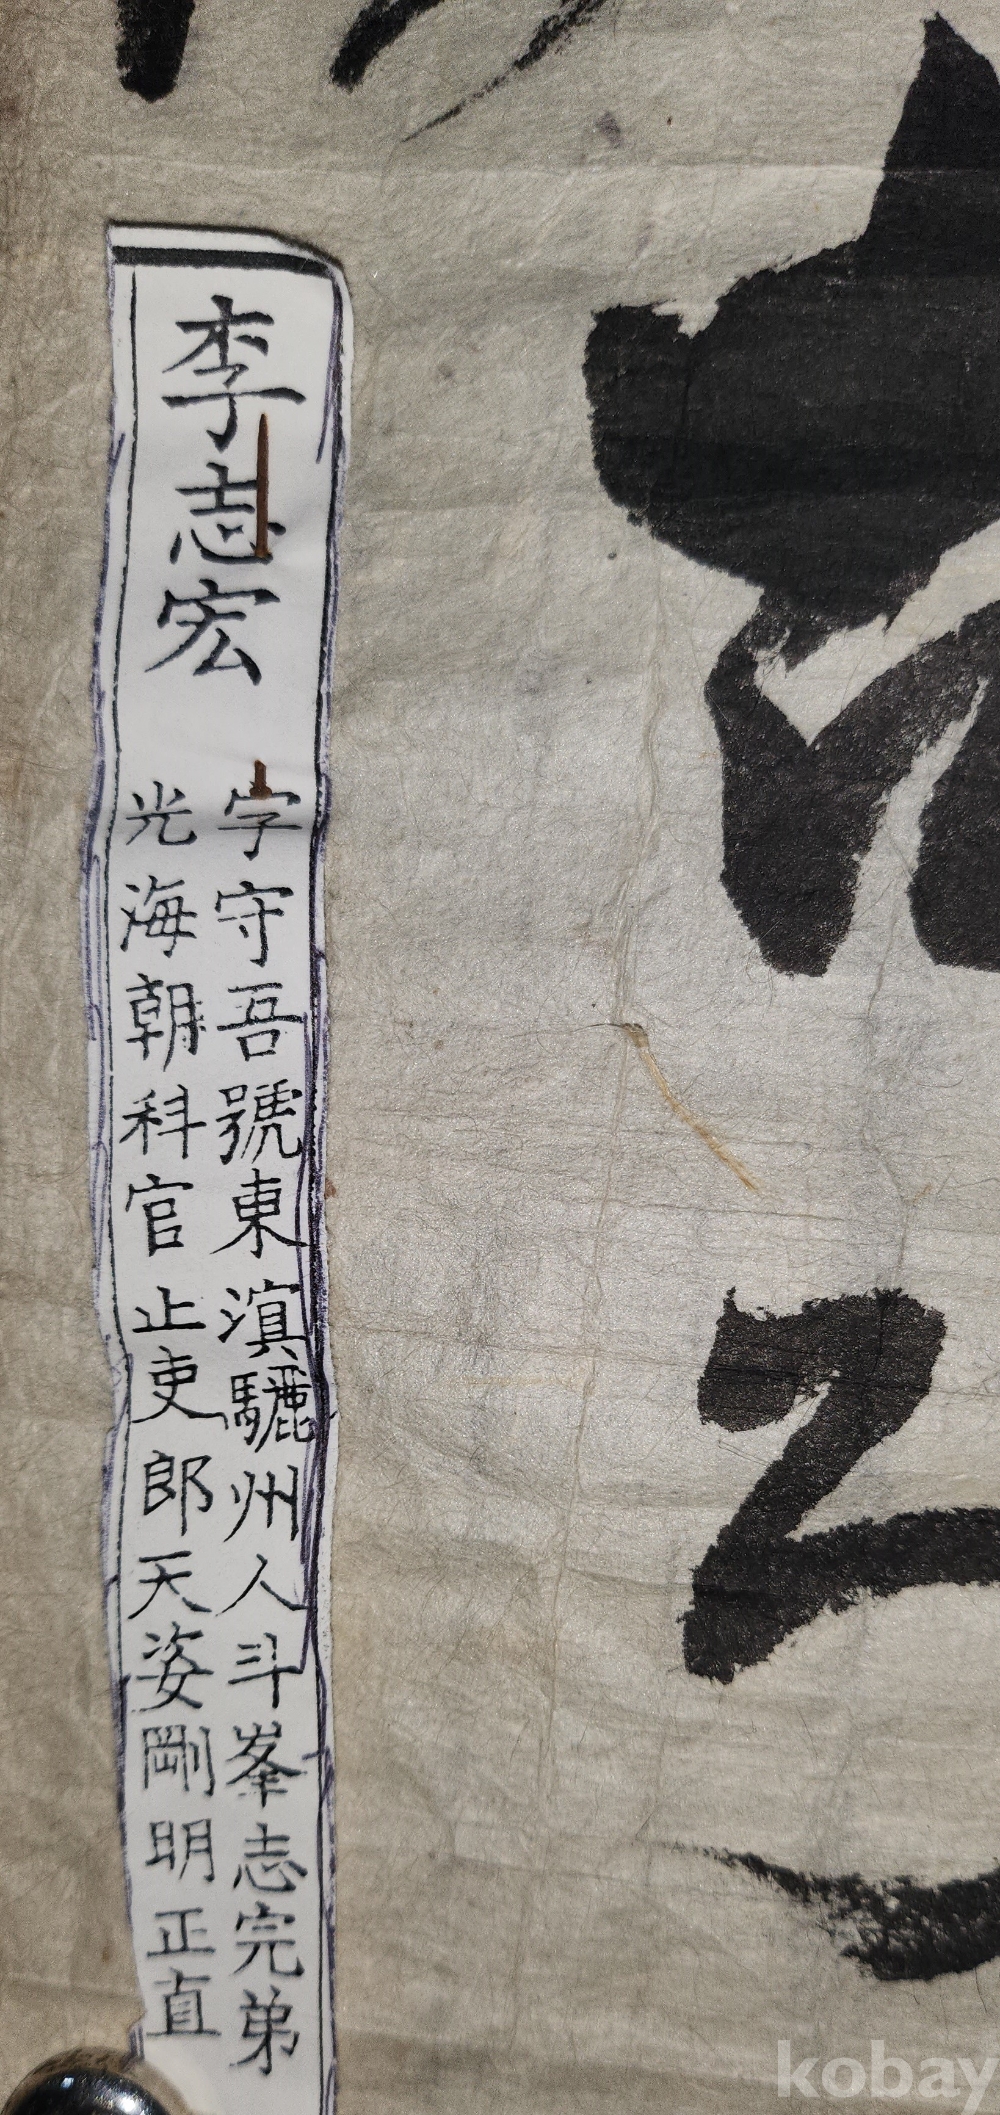 李志宏
字守吾號東滇驪州人斗峯志完弟
光海朝科官止吏郎天姿剛明正直
kobay